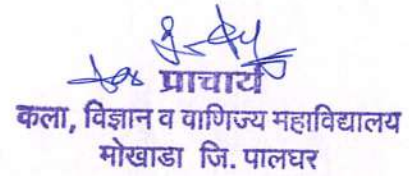 प्राचार्य
कला, विज्ञान व वाणिज्य महाविद्यालय
मोखाडा जि. पालघर